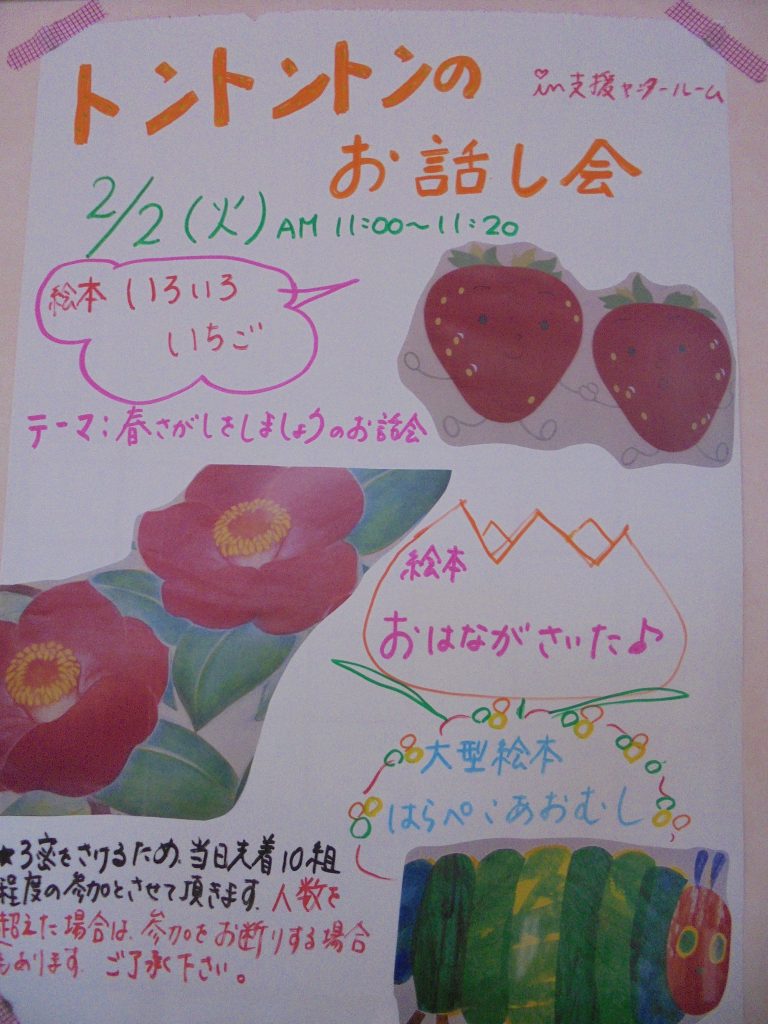 トントントンの
お話し会
in 支援センタールーム
2/2(火) AM 11:00～11:20
絵本 いろいろ
いちご
テーマ:春さがしをしましょうのお話会
絵本
おはながさいた♪
大型絵本
はらぺこあおむし
★3密をさけるため、当日先着10組
程度の参加とさせて頂きます。人数を
超えた場合は、参加をお断りする場合
もあります。ご了承下さい。